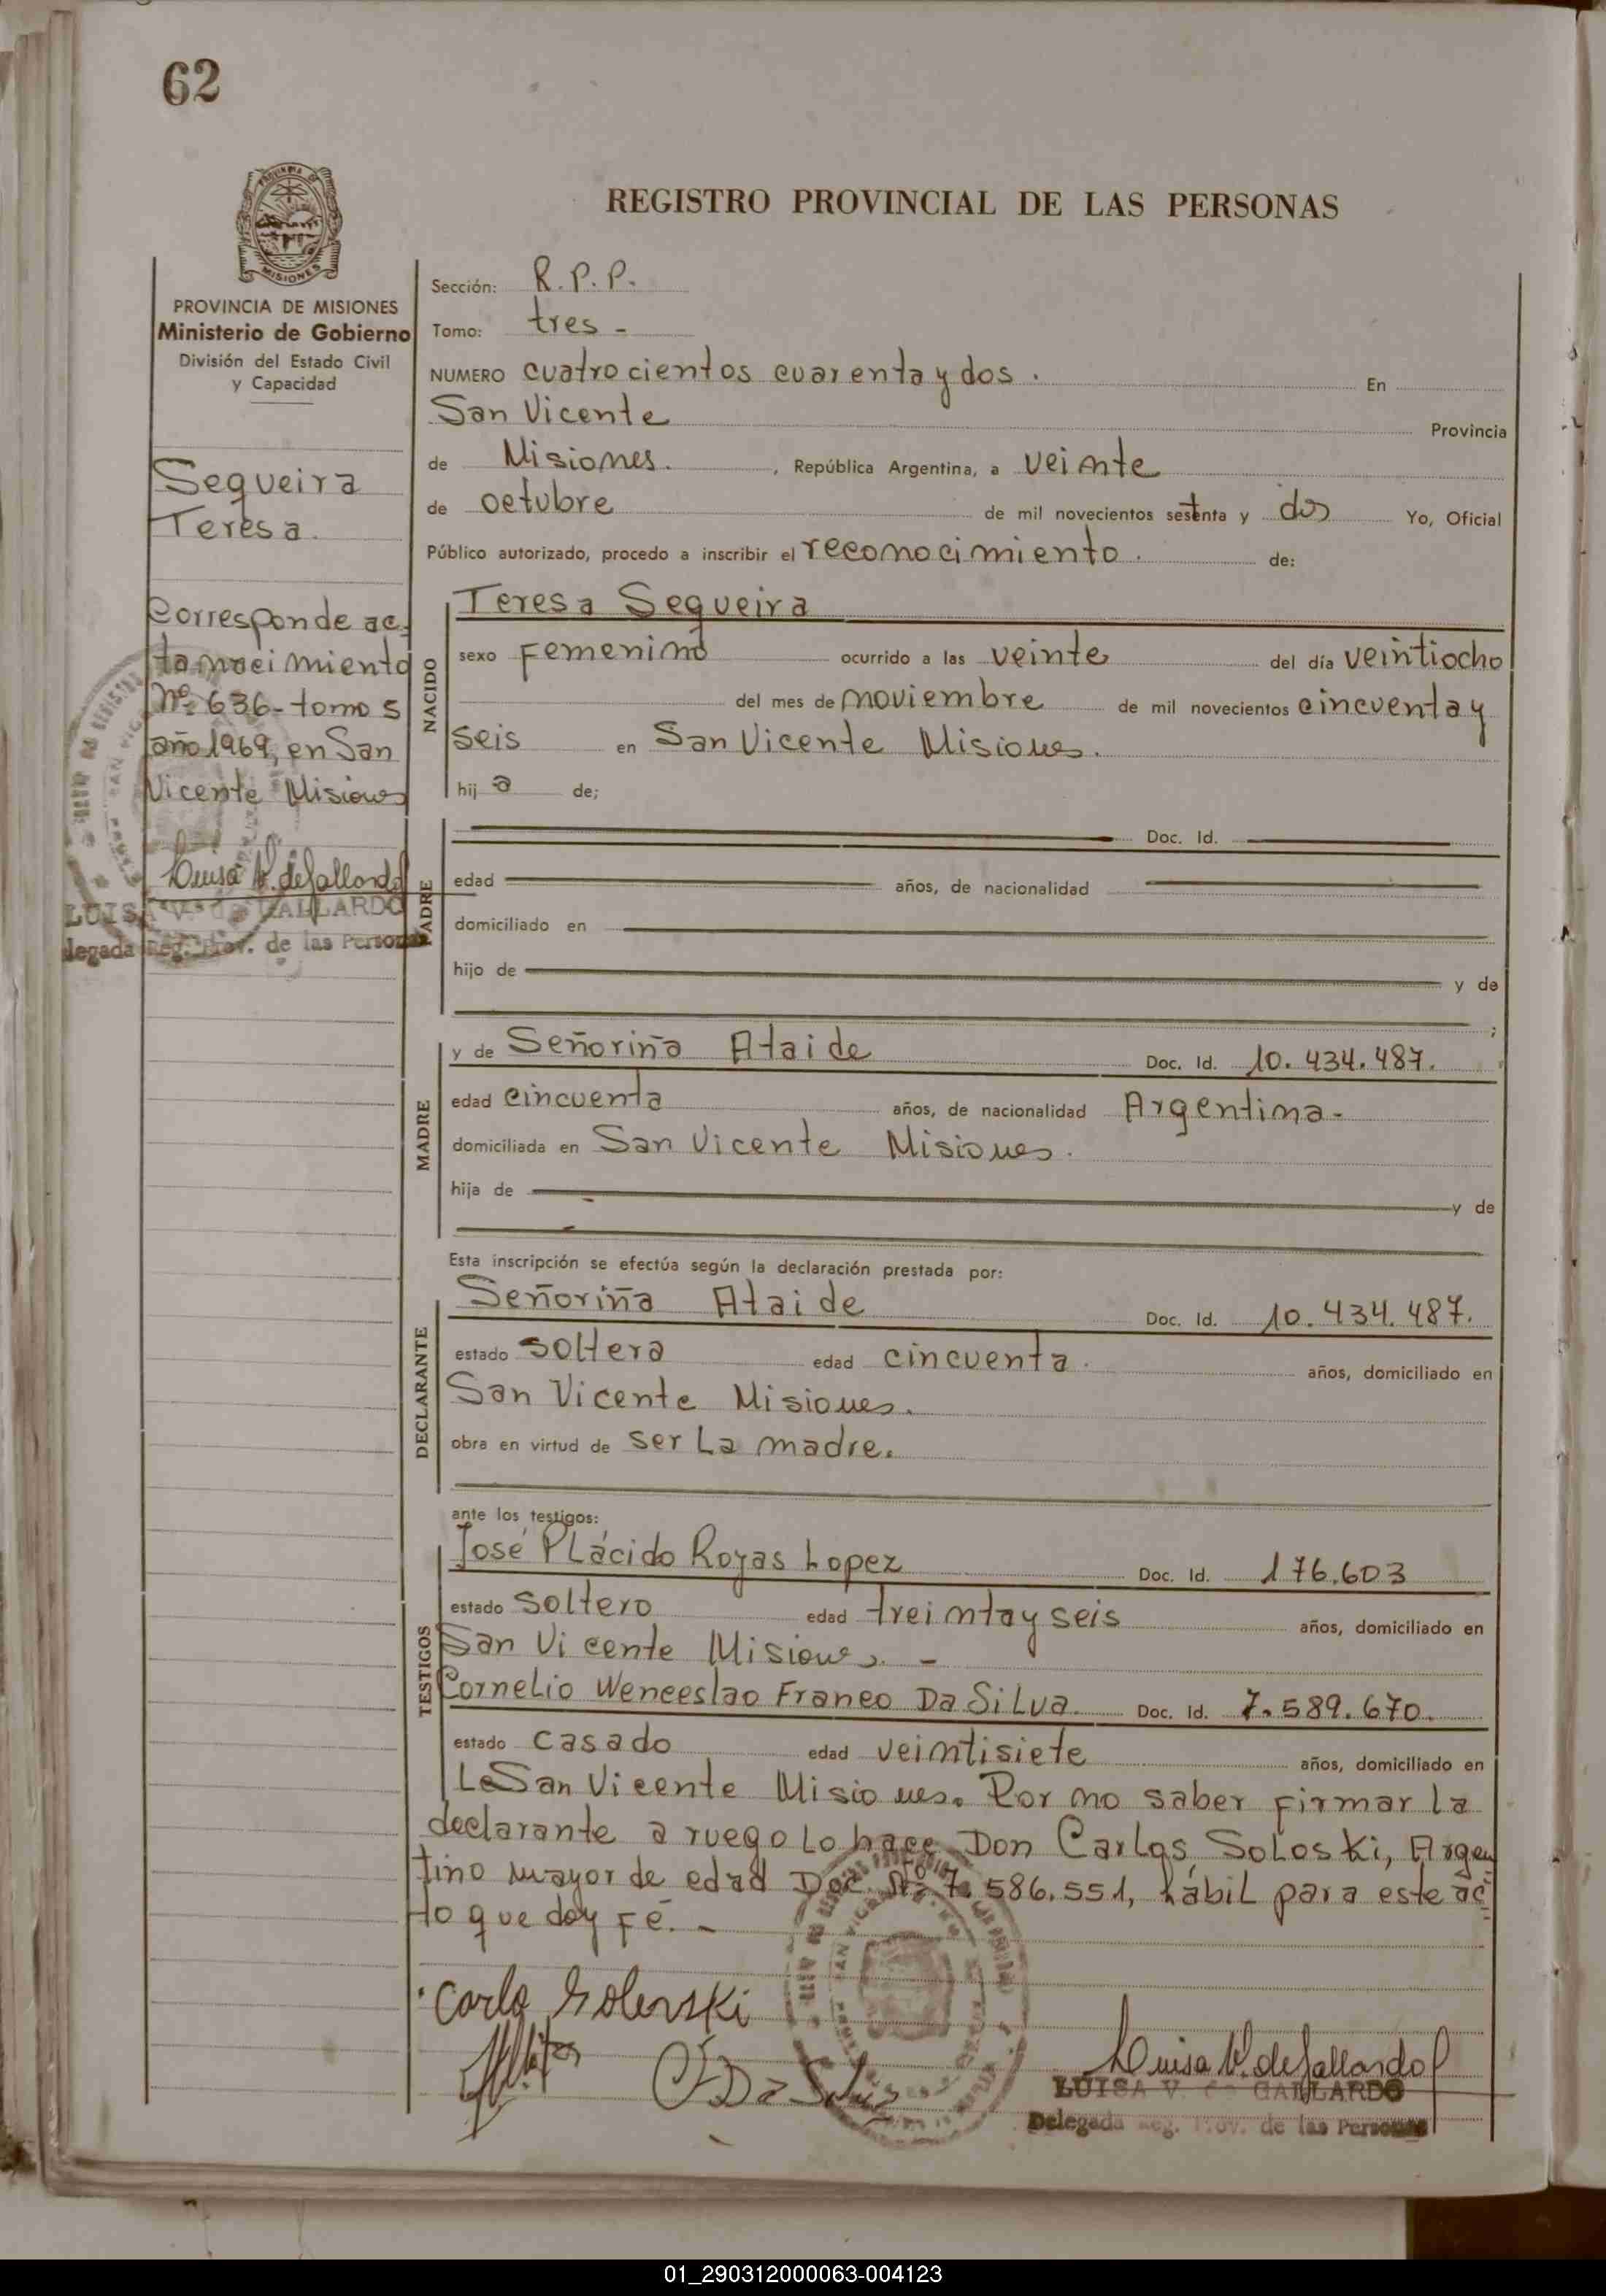 62
REGISTRO PROVINCIAL DE LAS PERSONAS
MISIONES
PROVINCIA DE MISIONES
Ministerio de Gobierno
División del Estado Civil
y Capacidad
Sequeira
Teresa.
Corresponde ac-
ta nacimiento
Nº 636 - tomo 5
año 1969, en San
Vicente Misiones
Luisa V. de Gallardo
LUISA V. de GALLARDO
Delegada Reg. Prov. de las Personas
Sección: R.P.P.
Tomo: tres -
NUMERO cuatrocientos cuarenta y dos. En
San Vicente Provincia
de Misiones. , República Argentina, a veinte
de octubre de mil novecientos setenta y dos Yo, Oficial
Público autorizado, procedo a inscribir el reconocimiento. de:
NACIDO
Teresa Sequeira
sexo Femenino ocurrido a las veinte del día veintiocho
del mes de noviembre de mil novecientos cincuenta y
seis en San Vicente Misiones.
hij a de;
PADRE
Doc. Id.
edad años, de nacionalidad
domiciliado en
hijo de y de
;
MADRE
y de Señoriña Ataide Doc. Id. 10.434.487.
edad cincuenta años, de nacionalidad Argentina-
domiciliada en San Vicente Misiones.
hija de y de
Esta inscripción se efectúa según la declaración prestada por:
DECLARANTE
Señoriña Ataide Doc. Id. 10.434.487.
estado soltera edad cincuenta. años, domiciliado en
San Vicente Misiones.
obra en virtud de ser la madre.
ante los testigos:
TESTIGOS
José Plácido Rojas Lopez Doc. Id. 176.603
estado soltero edad treinta y seis años, domiciliado en
San Vicente Misiones. -
Cornelio Wenceslao Franco Da Silva. Doc. Id. 7.589.670.
estado casado edad veintisiete años, domiciliado en
San Vicente Misiones. Por no saber firmar la
declarante a ruego lo hace Don Carlos Soloski, Argen
tino mayor de edad Doc. Nº 7.586.551, hábil para este ac-
to que doy fé. -
Carlo Solenski
Da Silva
Luisa V. de Gallardo
LUISA V. de GALLARDO
Delegada Reg. Prov. de las Personas
01_290312000063-004123